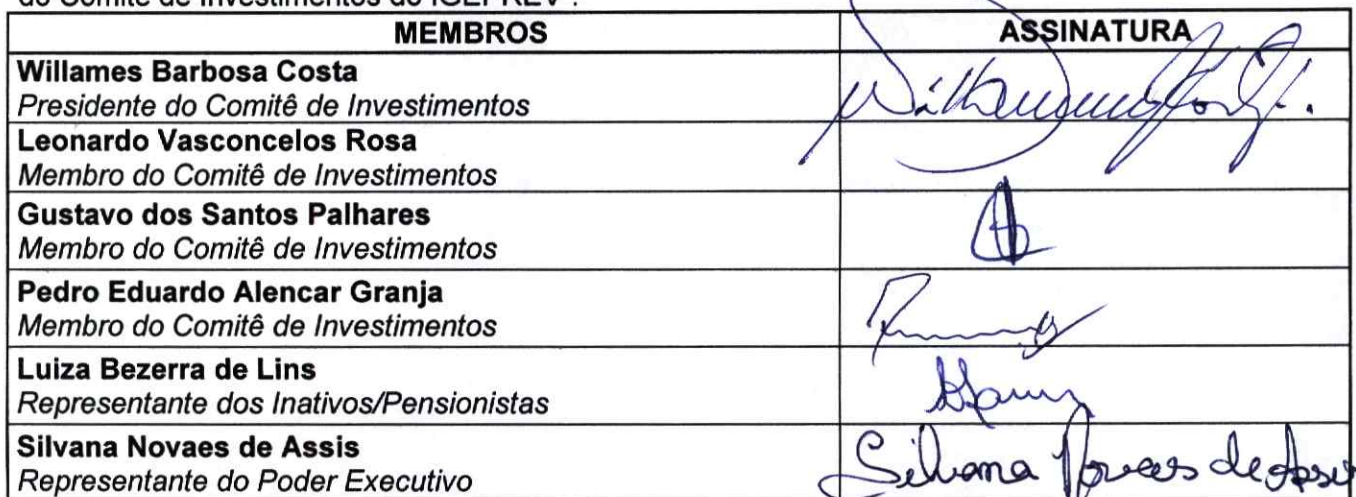 do Comitê de Investimentos do IGEPREV .
MEMBROS ASSINATURA
Willames Barbosa Costa
Presidente do Comitê de Investimentos
Leonardo Vasconcelos Rosa
Membro do Comitê de Investimentos
Gustavo dos Santos Palhares
Membro do Comitê de Investimentos
Pedro Eduardo Alencar Granja
Membro do Comitê de Investimentos
Luiza Bezerra de Lins
Representante dos Inativos/Pensionistas
Silvana Novaes de Assis
Representante do Poder Executivo
Silvana Novaes de Assis